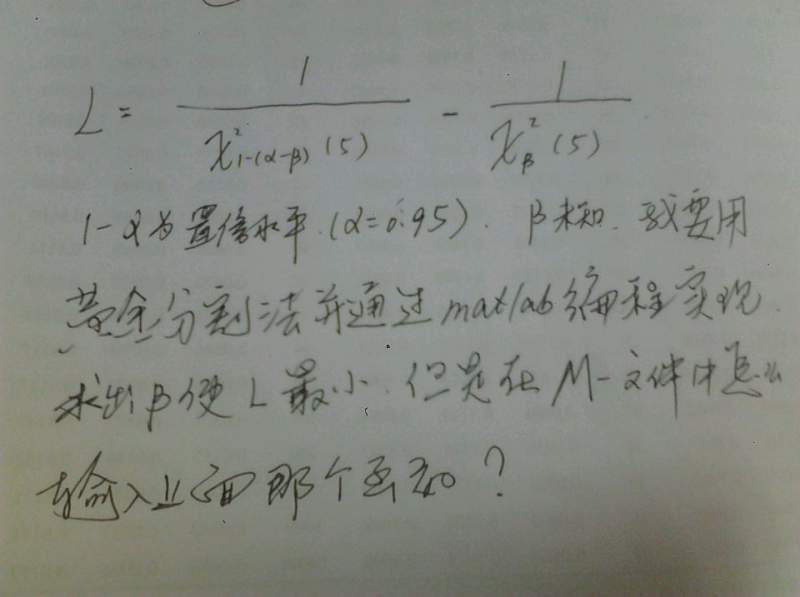 L = 1/χ²_{1-(α-β)}(5) - 1/χ²_β(5)
1-α为置信水平.(α=0.95). β未知. 我要用
黄金分割法并通过matlab编程实现.
求出β使L最小. 但是在M-文件中怎么
输入上面那个函数?